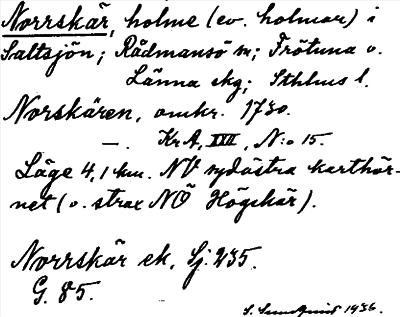 Norrskär, holme (ev. holmar) i
Saltsjön; Rådmansö sn; Frötuna o.
Länna skg; Sthlms l.
Norskären, omkr. 1730.
—. KrA, XVII, N:o 15.
Läge 4,1 km. NV sydöstra karthör-
net (o. strax NÖ Högskär).
Norrskär ek. Sj. 235.
G. 85.
S. Sundquist 1936.